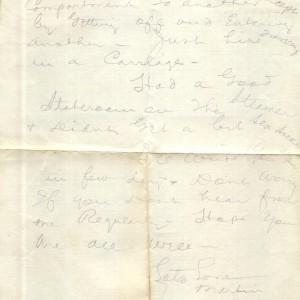 Compartment to another except
By Getting off and Entering
another - Just like Traveling
in a Carriage -
Had a Good
Stateroom on the Steamer
& Didnt Get a bit Sea Sick
in few days Dont Worry
If you Dont hear from
me Regularly - Hope you
are all well -
Lots Love
Martin